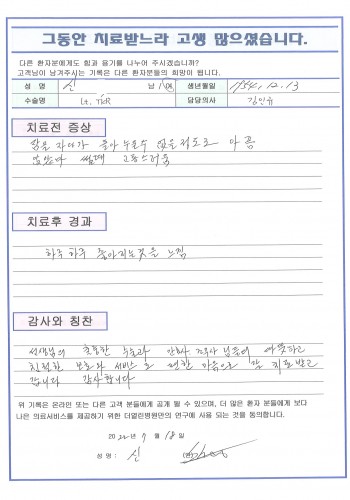 그동안 치료받느라 고생 많으셨습니다.
다른 환자분에게도 힘과 용기를 나누어 주시겠습니까?
고객님이 남겨주시는 기록은 다른 환자분들의 희망이 됩니다.
성 명 신 남 / 여 생년월일 1954. 12. 13
수술명 Lt. TKR 담당의사 김인유
치료전 증상
잠을 자다가 돌아누울수 없을정도로 아픔
앉았다 설때 고통스러움
치료후 경과
하루 하루 좋아지는것을 느낌
감사와 칭찬
선생님의 훌륭한 수술과 간호사 님들의 따뜻하고
친절한 보호와 서비스로 편한 마음으로 잘 치료받고
갑니다 감사합니다
위 기록은 온라인 또는 다른 고객 분들에게 공개 될 수 있으며, 더 많은 환자 분들에게 보다
나은 의료서비스를 제공하기 위한 더열린병원만의 연구에 사용 되는 것을 동의합니다.
2022년 9월 18일
성 명 : 신 (인)